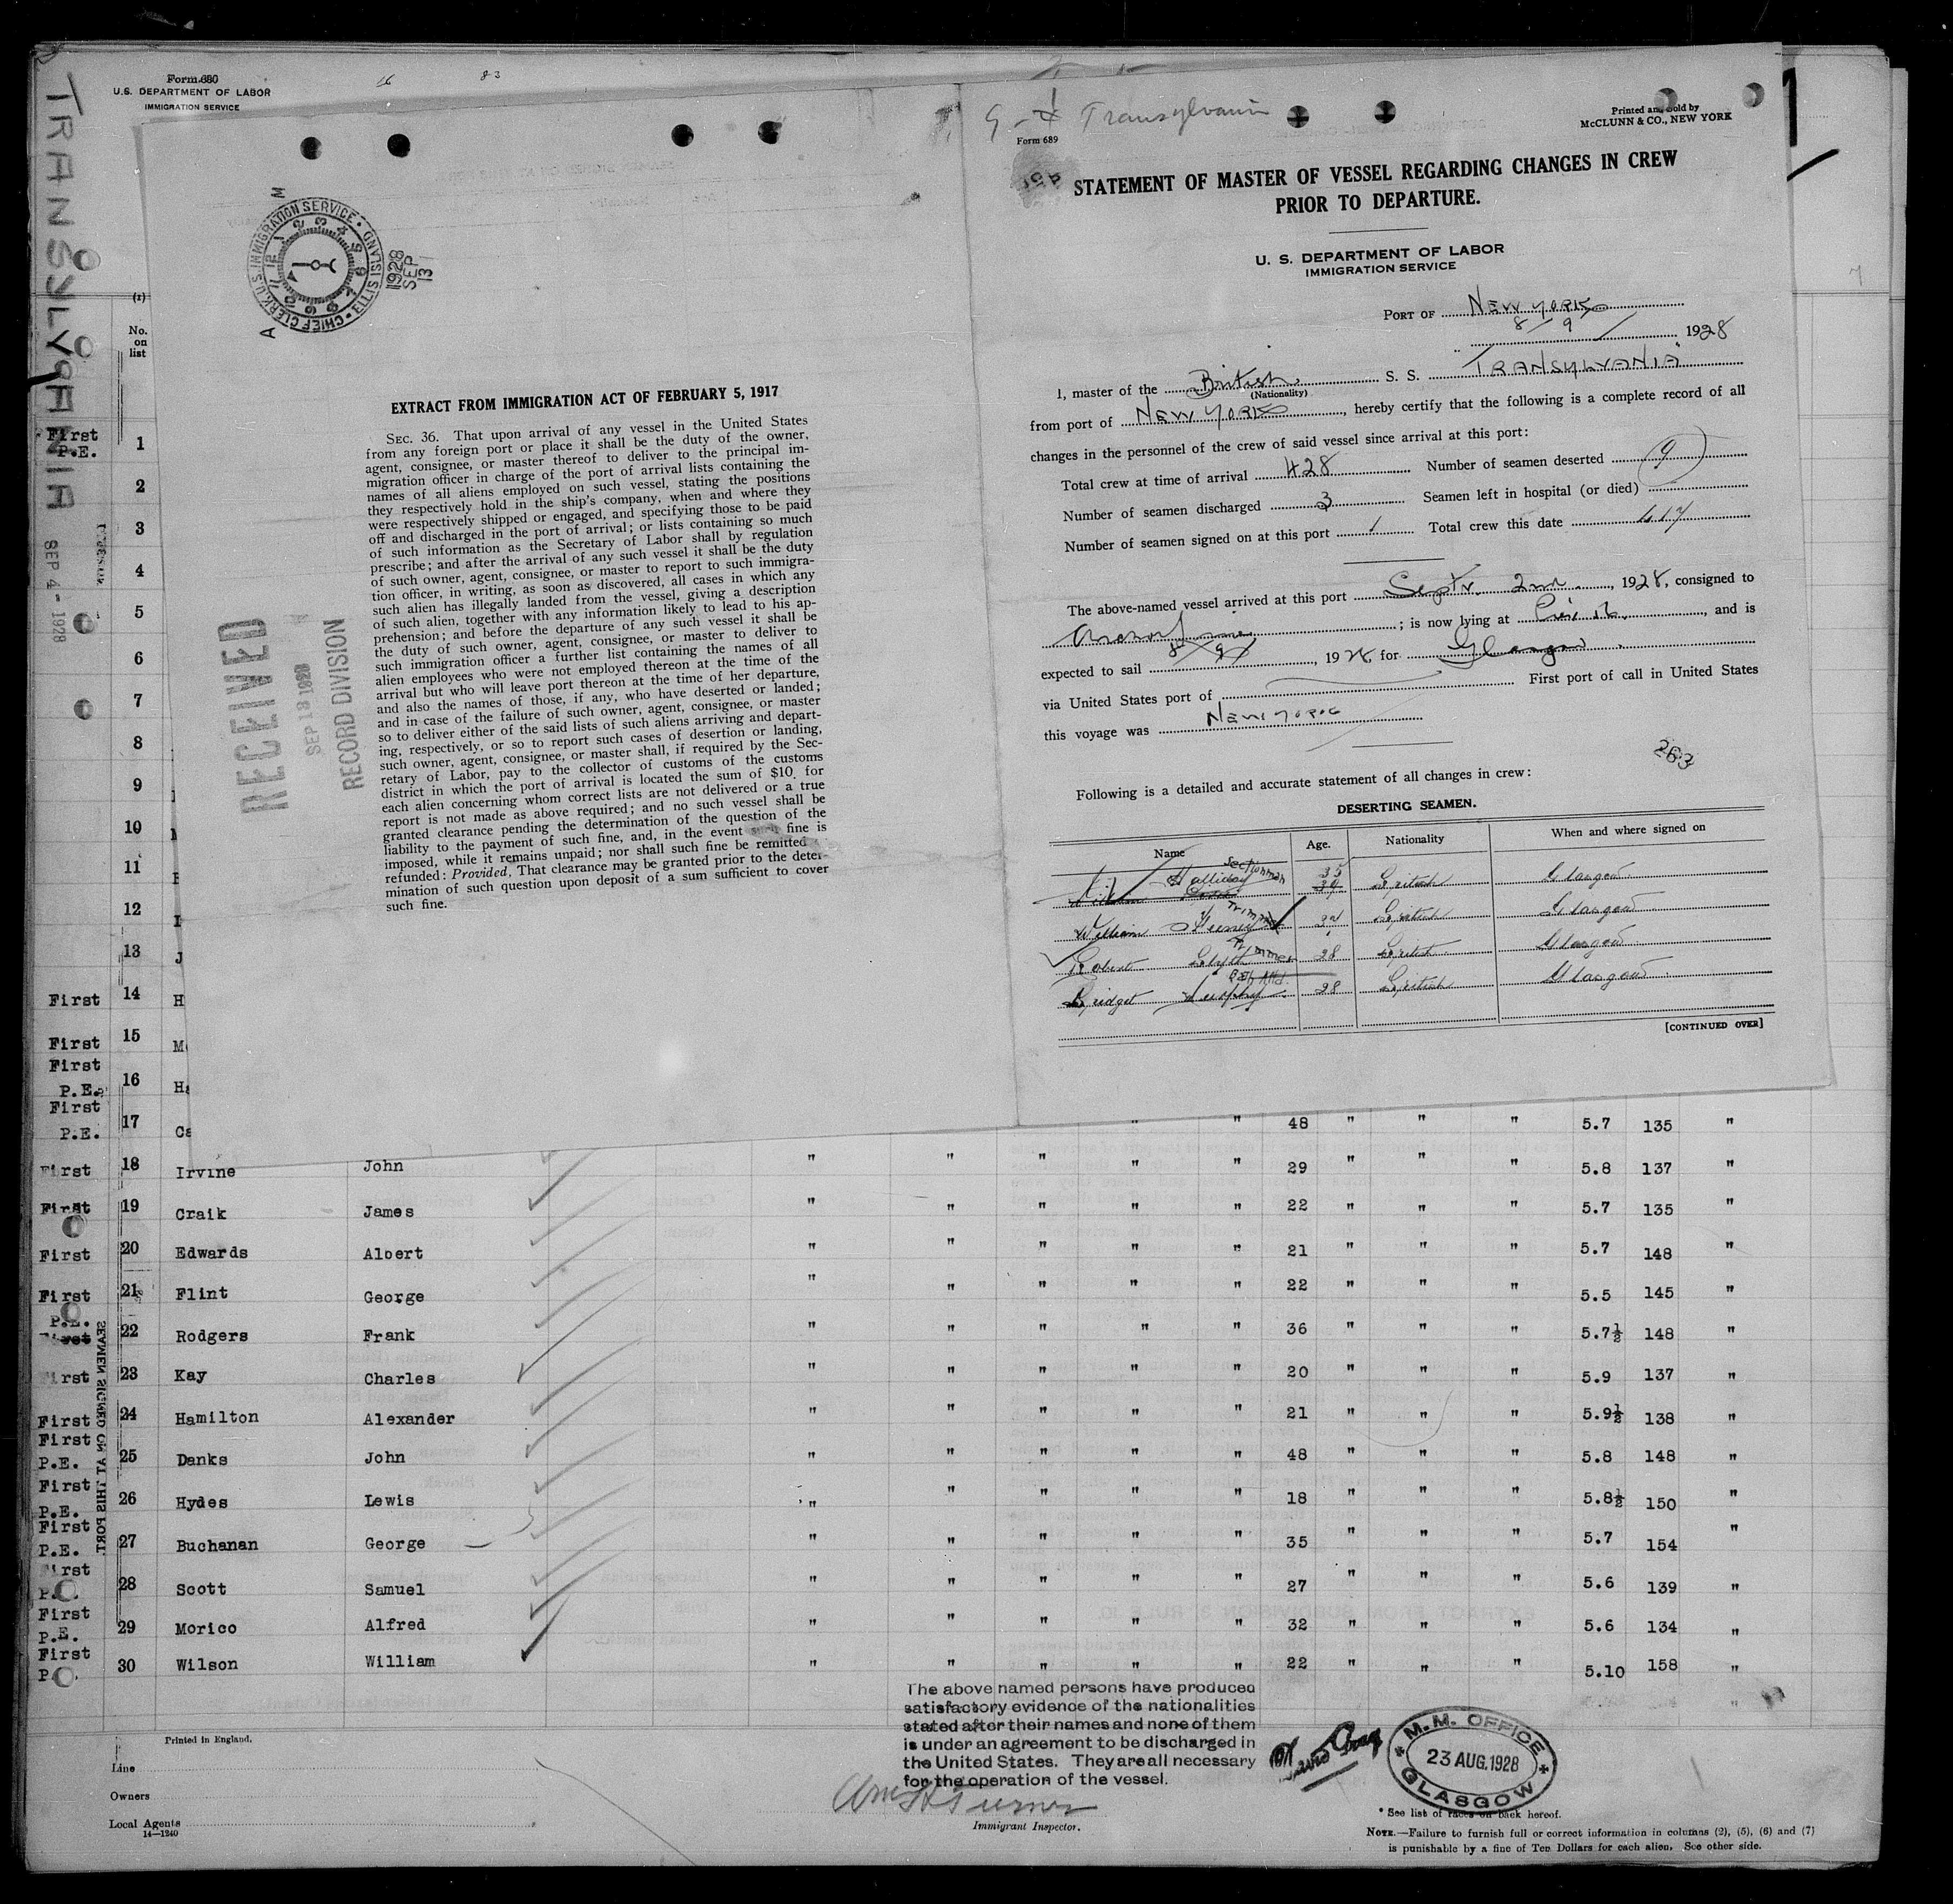 Form 680
U.S. DEPARTMENT OF LABOR
IMMIGRATION SERVICE
16 83
TRANSYLVANIA
SEP 4 - 1928
(1)
No.
on
list
First
P.E.
1
2
3
4
5
6
7
8
9
10
11
12
13
First 14 H
First 15 M
First
P.E. 16 Ha
First
P.E. 17 Ca
CHIEF CLERK, U.S. IMMIGRATION SERVICE • ELLIS ISLAND
1928
SEP
13
A M
EXTRACT FROM IMMIGRATION ACT OF FEBRUARY 5, 1917
SEC. 36. That upon arrival of any vessel in the United States
from any foreign port or place it shall be the duty of the owner,
agent, consignee, or master thereof to deliver to the principal im-
migration officer in charge of the port of arrival lists containing the
names of all aliens employed on such vessel, stating the positions
they respectively hold in the ship's company, when and where they
were respectively shipped or engaged, and specifying those to be paid
off and discharged in the port of arrival; or lists containing so much
of such information as the Secretary of Labor shall by regulation
prescribe; and after the arrival of any such vessel it shall be the duty
of such owner, agent, consignee, or master to report to such immigra-
tion officer, in writing, as soon as discovered, all cases in which any
such alien has illegally landed from the vessel, giving a description
of such alien, together with any information likely to lead to his ap-
prehension; and before the departure of any such vessel it shall be
the duty of such owner, agent, consignee, or master to deliver to
such immigration officer a further list containing the names of all
alien employees who were not employed thereon at the time of the
arrival but who will leave port thereon at the time of her departure,
and also the names of those, if any, who have deserted or landed;
and in case of the failure of such owner, agent, consignee, or master
so to deliver either of the said lists of such aliens arriving and depart-
ing, respectively, or so to report such cases of desertion or landing,
such owner, agent, consignee, or master shall, if required by the Sec-
retary of Labor, pay to the collector of customs of the customs
district in which the port of arrival is located the sum of $10 for
each alien concerning whom correct lists are not delivered or a true
report is not made as above required; and no such vessel shall be
granted clearance pending the determination of the question of the
liability to the payment of such fine, and, in the event such fine is
imposed, while it remains unpaid; nor shall such fine be remitted
refunded: Provided, That clearance may be granted prior to the deter-
mination of such question upon deposit of a sum sufficient to cover
such fine.
RECEIVED
SEP 18 1928
RECORD DIVISION
Transylvania
Form 689
Printed and Sold by
McCLUNN & CO., NEW YORK
STATEMENT OF MASTER OF VESSEL REGARDING CHANGES IN CREW
PRIOR TO DEPARTURE.
U. S. DEPARTMENT OF LABOR
IMMIGRATION SERVICE
PORT OF NEW YORK
8/9/ 1928
I, master of the British S. S. "TRANSYLVANIA"
(Nationality)
from port of NEW YORK, hereby certify that the following is a complete record of all
changes in the personnel of the crew of said vessel since arrival at this port:
Total crew at time of arrival 428 Number of seamen deserted 9
Number of seamen discharged 3 Seamen left in hospital (or died)
Number of seamen signed on at this port 1 Total crew this date 417
The above-named vessel arrived at this port Septr. 2nd, 1928, consigned to
Anchor Line; is now lying at Pier 16, and is
expected to sail 8/9/, 1928 for Glasgow
via United States port of First port of call in United States
this voyage was NEW YORK
263
Following is a detailed and accurate statement of all changes in crew:
DESERTING SEAMEN.
Name Age. Nationality When and where signed on
Halliday 35 British Glasgow
William British Glasgow
Robert Blyth Trimmer 28 British Glasgow
Bridget Murphy 28 British Glasgow
[CONTINUED OVER]
" " 48 " " " 5.7 135 "
First 18 Irvine John " " " " " 29 " " " 5.8 137 "
First 19 Craik James " " " " " 22 " " " 5.7 135 "
First 20 Edwards Albert " " " " " 21 " " " 5.7 148 "
First 21 Flint George " " " " " 22 " " " 5.5 145 "
P.E.
First 22 Rodgers Frank " " " " " 36 " " " 5.7½ 148 "
First 23 Kay Charles " " " " " 20 " " " 5.9 137 "
First 24 Hamilton Alexander " " " " " 21 " " " 5.9½ 138 "
First
P.E. 25 Danks John " " " " " 48 " " " 5.8 148 "
First
P.E. 26 Hydes Lewis " " " " " 18 " " " 5.8½ 150 "
First
P.E. 27 Buchanan George " " " " " 35 " " " 5.7 154 "
First
P. 28 Scott Samuel " " " " " 27 " " " 5.6 139 "
First
P.E. 29 Morico Alfred " " " " " 32 " " " 5.6 134 "
First
P. 30 Wilson William " " " " " 22 " " " 5.10 158 "
SEAMEN SIGNED ON AT THIS PORT.
The above named persons have produced
satisfactory evidence of the nationalities
stated after their names and none of them
is under an agreement to be discharged in
the United States. They are all necessary
for the operation of the vessel.
Turner
Immigrant Inspector.
M.M. OFFICE
23 AUG. 1928
GLASGOW
Printed in England.
Line
Owners
Local Agents
14—1240
* See list of races on back hereof.
NOTE.—Failure to furnish full or correct information in columns (2), (5), (6) and (7)
is punishable by a fine of Ten Dollars for each alien. See other side.